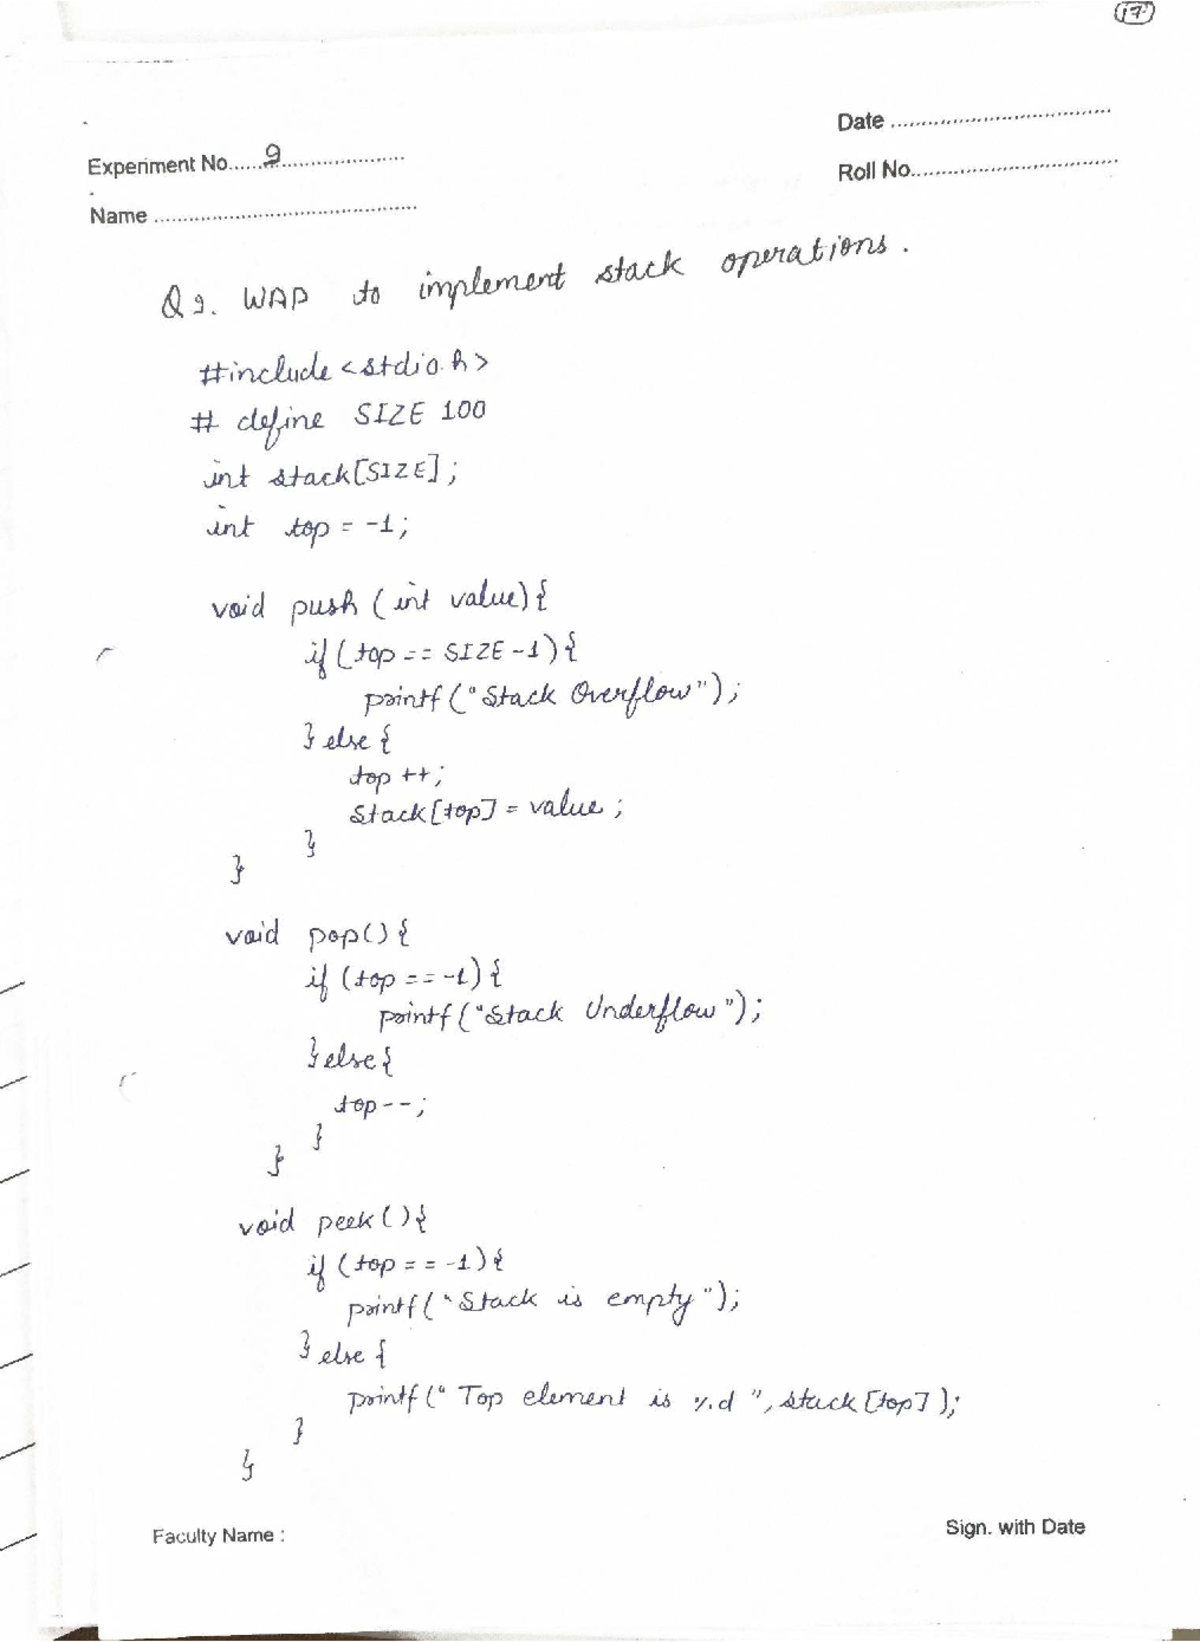 17
Date
Experiment No. 9
Roll No.
Name
Q 9. WAP to implement stack operations.
#include <stdio.h>
# define SIZE 100
int stack[SIZE];
int top = -1;
void push (int value){
if (top == SIZE-1){
printf ("Stack Overflow");
} else {
top ++;
Stack [top] = value ;
}
}
void pop() {
if (top == -1) {
printf ("Stack Underflow");
} else {
top--;
}
}
void peek () {
if (top == -1) {
printf ("Stack is empty");
} else {
printf (" Top element is %d ", stack [top] );
}
}
Faculty Name :
Sign. with Date